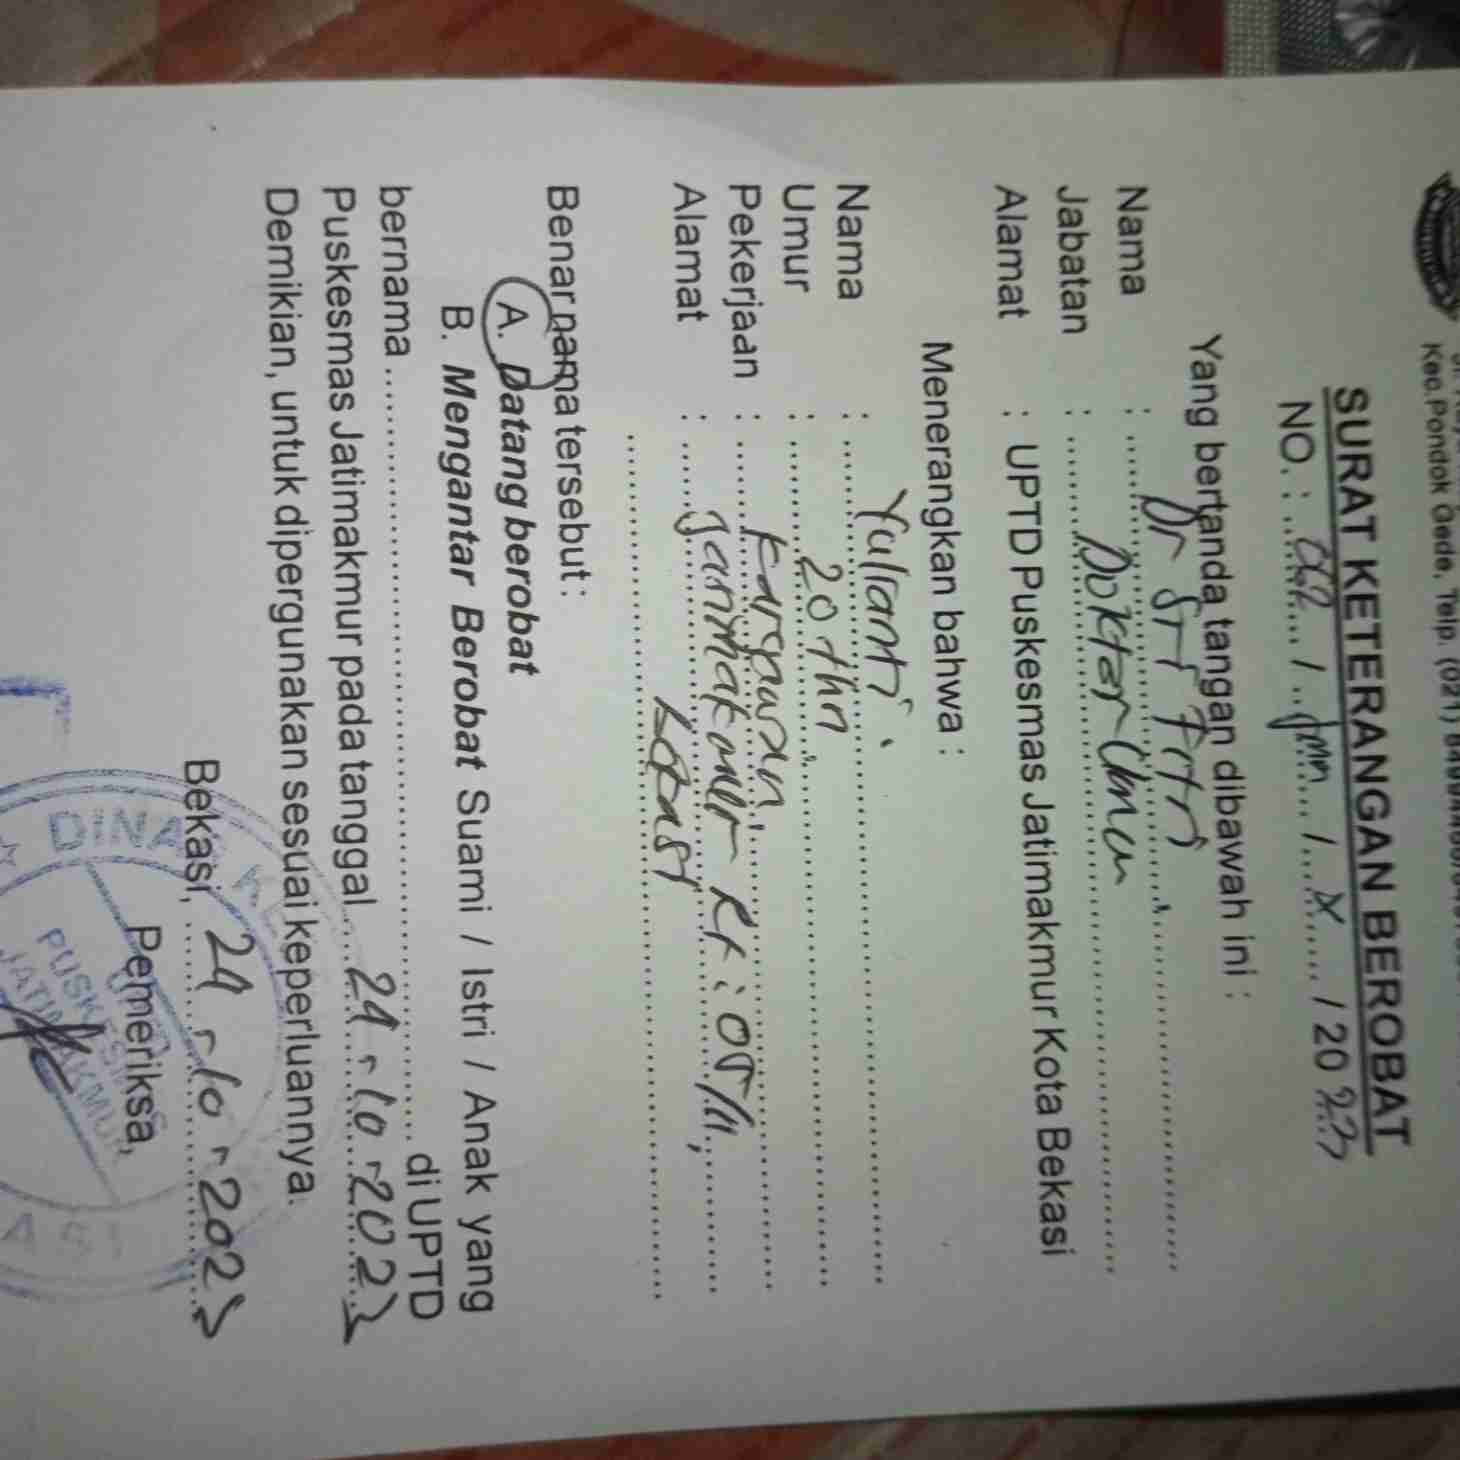 Kec. Pondok Gede, Telp. (021)
SURAT KETERANGAN BEROBAT
NO. : / / X / 2023
Yang bertanda tangan dibawah ini :
Nama : Dr Sri Fitri
Jabatan : Dokter Umum
Alamat : UPTD Puskesmas Jatimakmur Kota Bekasi
Menerangkan bahwa :
Nama : Yulianti
Umur : 20 thn
Pekerjaan : Karyawan
Alamat : Jatimakmur Rt : 05/
Bekasi
Benar nama tersebut :
A. Datang berobat
B. Mengantar Berobat Suami / Istri / Anak yang
bernama di UPTD
Puskesmas Jatimakmur pada tanggal 24-10-2023
Demikian, untuk dipergunakan sesuai keperluannya.
Bekasi, 24-10-2023
Pemeriksa,
DINAS KE
PUSKESMAS
JATIMAKMUR